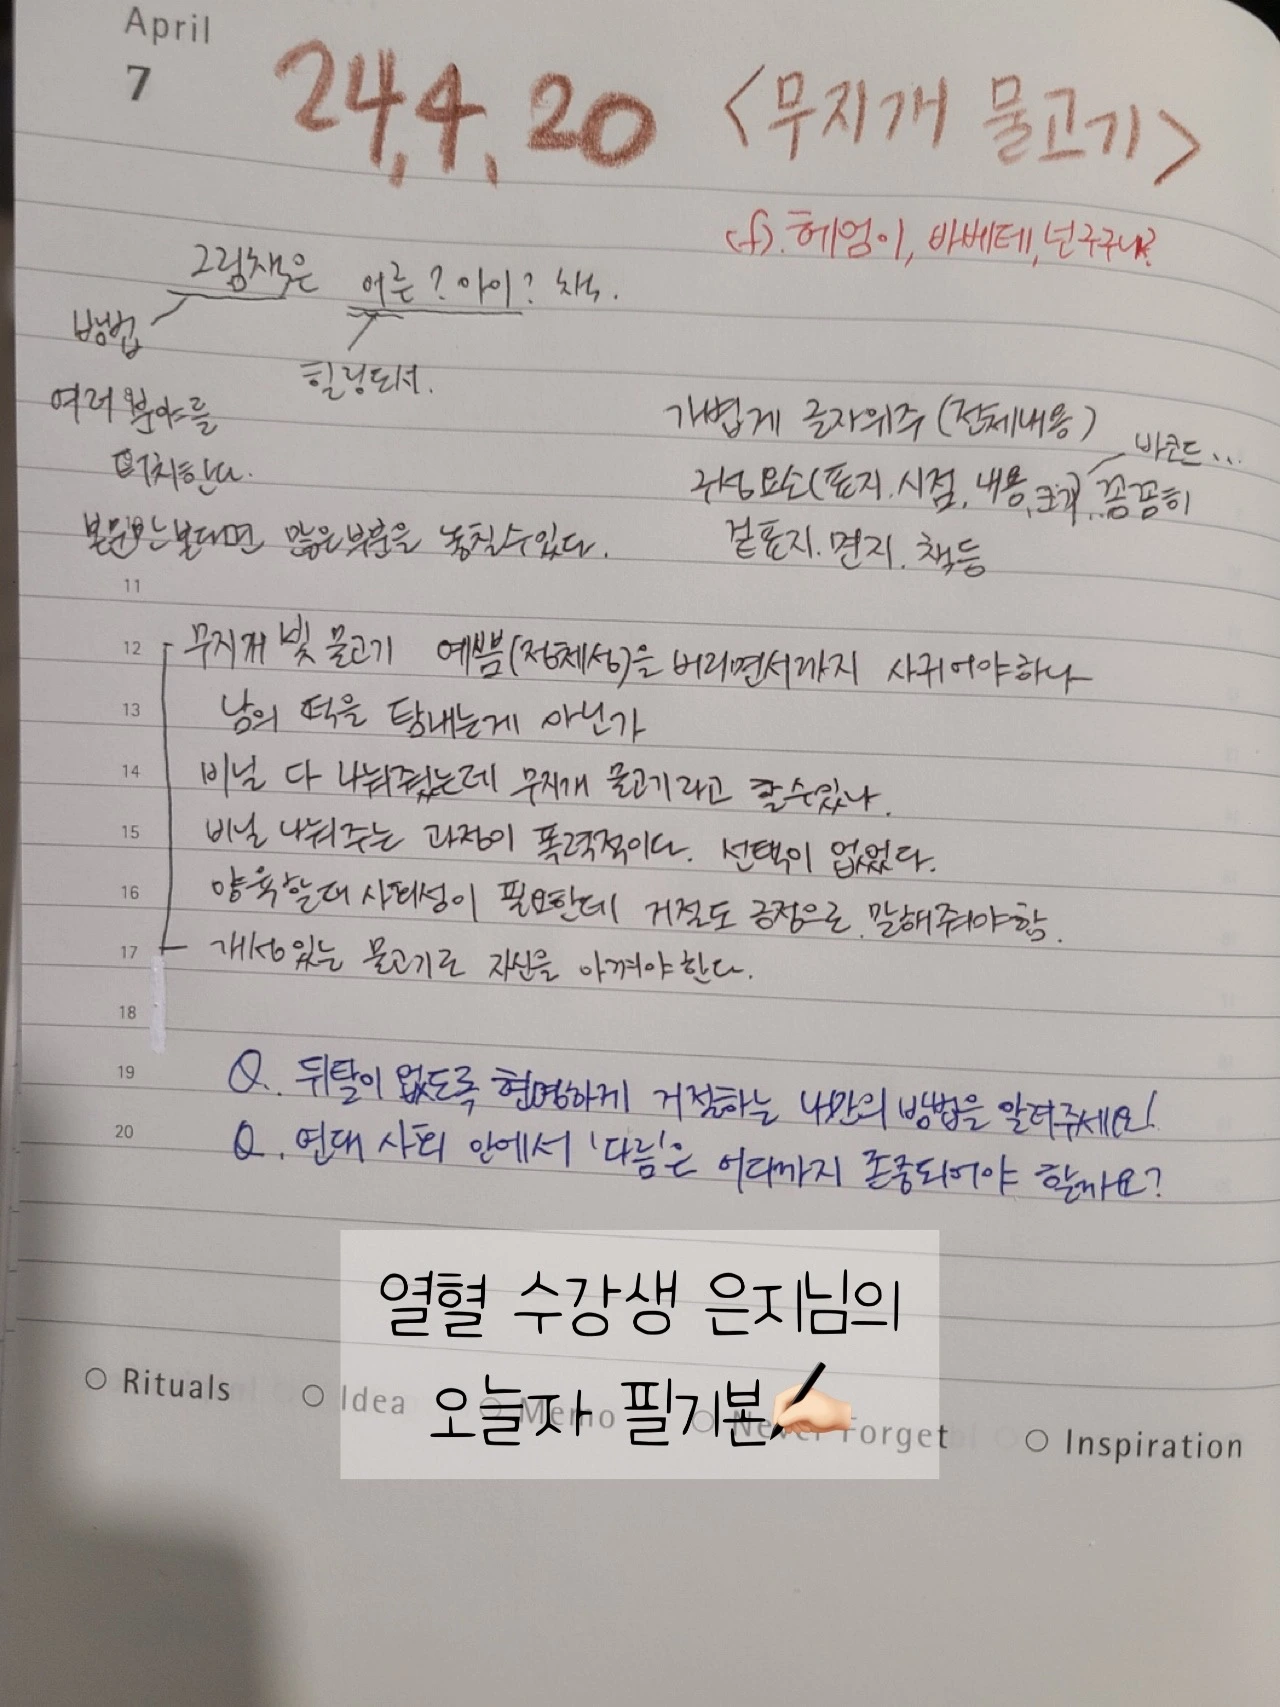 April
7
24, 4, 20 <무지개 물고기>
cf). 헤엄이, 바베테, 넌 누구니?
그림책은 어른? 아이? 책.
방법
힐링도서.
여러 분야를
터치한다.
본문만 본다면 많은 부분을 놓칠수있다.
가볍게 글자위주 (전체내용)
바코드...
구성요소(표지. 시점, 내용, 크기.. 꼼꼼히
겉표지. 면지. 책등
11
12 무지개 빛 물고기 예쁨(정체성)을 버리면서까지 사귀어야하나
13 남의 떡을 탐내는게 아닌가
14 비닐 다 나눠줬는데 무지개 물고기라고 할수있나.
15 비닐 나눠주는 과정이 폭력적이다. 선택이 없었다.
16 양육할때 사회성이 필요한데 거절도 긍정으로 말해줘야함.
17 개성있는 물고기로 자신을 아껴야한다.
18
19 Q. 뒤탈이 없도록 현명하게 거절하는 나만의 방법을 알려주세요!
20 Q. 연대 사회 안에서 '다름'은 어디까지 존중되어야 할까요?
열혈 수강생 은지님의
오늘자 필기본✍🏻
Rituals Idea Memo Never Forget Inspiration